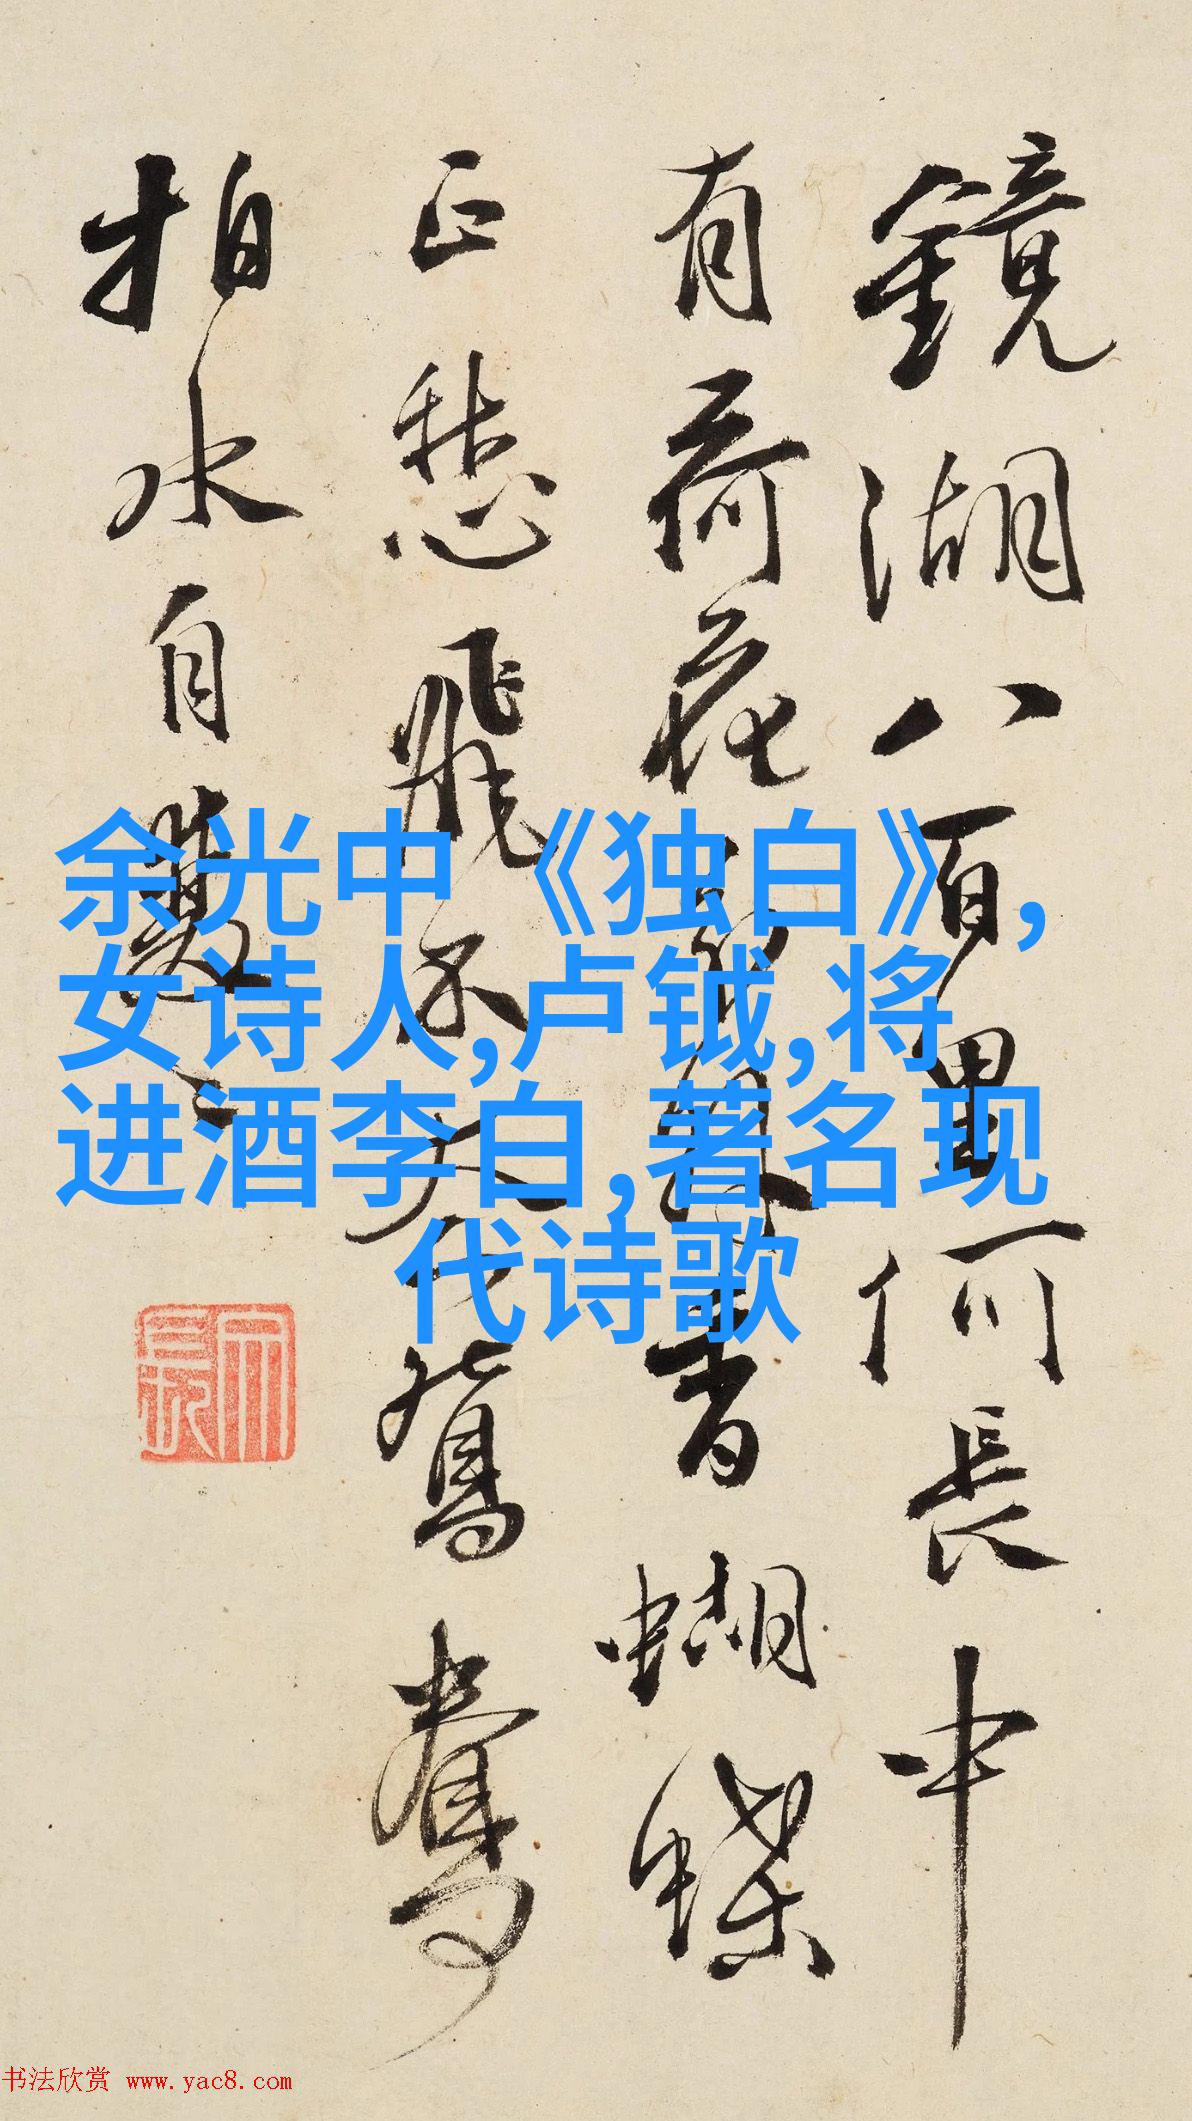 鏡湖八百里何長中
有荷花香蝴蝶
正愁飛不鴛鴦
拍水自雙
余光中《独白》,
女诗人,卢钺,将
进酒李白,著名现
代诗歌
书法欣赏 www.yac8.com